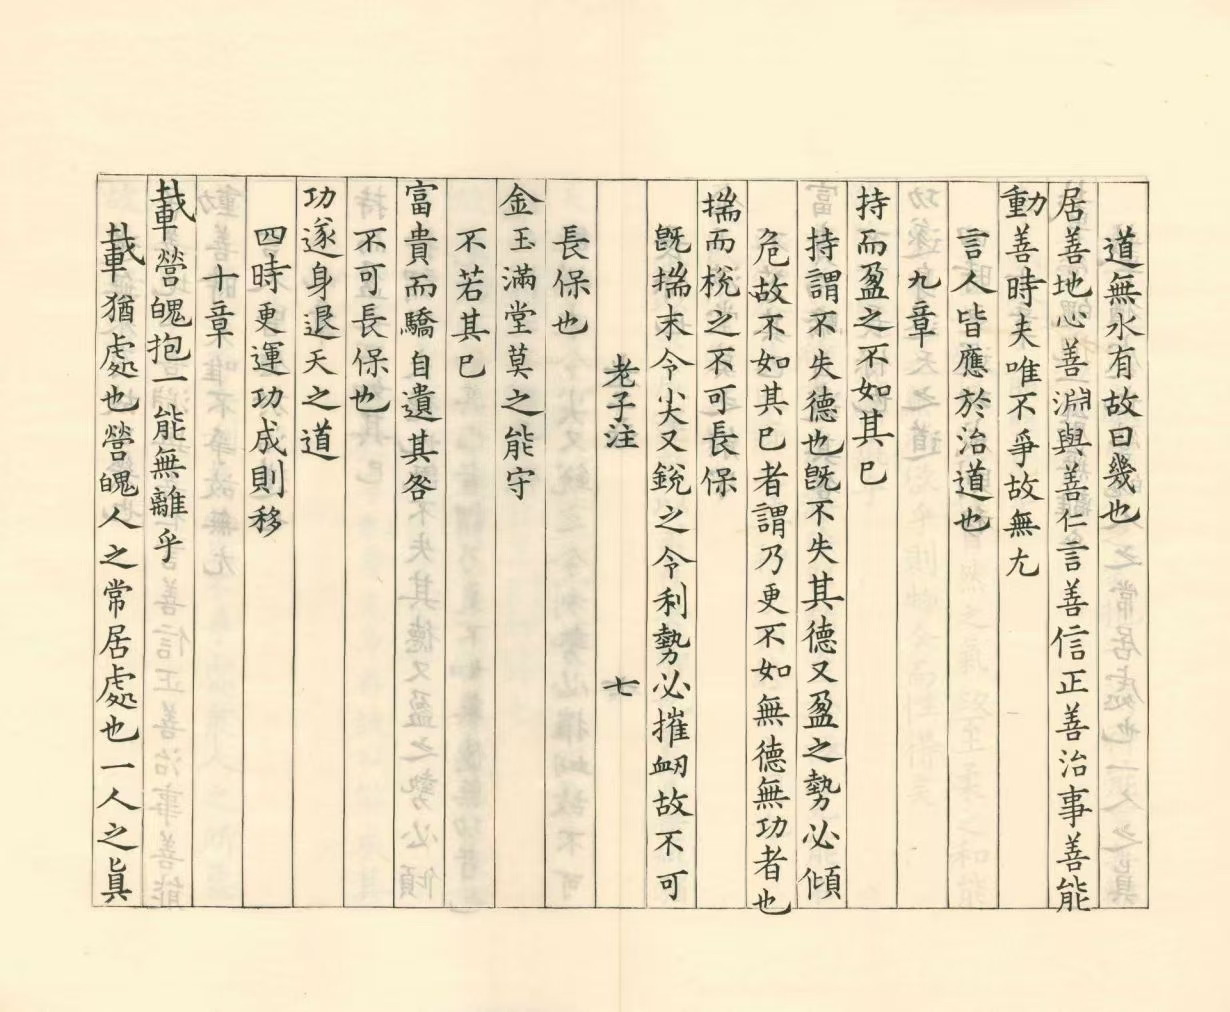 道無水有故曰幾也
居善地心善淵與善仁言善信正善治事善能
動善時夫唯不爭故無尤
言人皆應於治道也
九章
持而盈之不如其已
持謂不失德也既不失其德又盈之勢必傾
危故不如其已者謂乃更不如無德無功者也
揣而梲之不可長保
既揣末令尖又銳之令利勢必摧衂故不可
老子注
七
長保也
金玉滿堂莫之能守
不若其已
富貴而驕自遺其咎
不可長保也
功遂身退天之道
四時更運功成則移
十章
載營魄抱一能無離乎
載猶處也營魄人之常居處也一人之眞